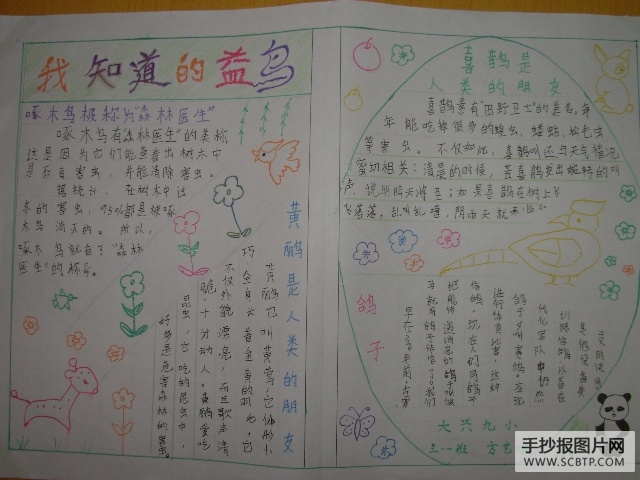 我知道的益鸟
啄木鸟被称为“森林医生”
啄木鸟有“森林医生”的美称,
这是因为它们能查看出树木中
是否有害虫,并能清除害虫。
据统计,在树木中过
冬的害虫,95%都是被啄
木鸟消灭的。所以,
啄木鸟就有了“森林
医生”的称号。
黄鹂是人类的朋友
黄鹂也叫黄莺,它体形小
巧,全身长着金黄的羽毛,它
不仅外貌漂亮,而且歌声清
脆,十分动人。黄鹂常吃
昆虫,它吃的昆虫中,
好多是危害森林的害虫。
喜鹊是
人类的朋友
喜鹊素有“田野卫士”的美名,年
年能吃掉很多的蝗虫、蝼蛄、松毛虫
等害虫。不仅如此,喜鹊叫还与天气情况
密切相关:清晨的时候,若喜鹊发出婉转的叫
声,说明晴天将至;如果喜鹊在树上飞
飞落落,乱叫乱噪,阴雨天就来临。
鸽子
早在
我们
信鸽,现在人们
进行体育比赛,这样
鸽子又叫赛鸽,在现
代化军队中仍然
训练信鸽,以备在
大兴九小
三·一班
手抄报图片网
WWW.SCBTP.COM